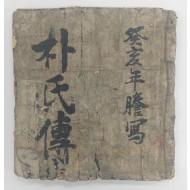 癸亥年謄寫
朴氏傳